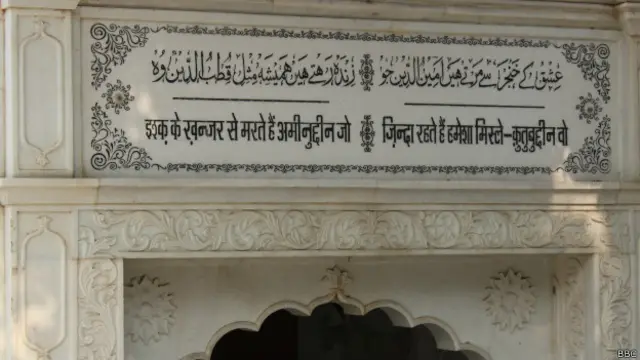 عشق کے خنجر سے مرتے ہیں امین الدین جو زندہ رہتے ہیں ہمیشہ مثل قطب الدین وہ
इश्क़ के ख़न्जर से मरते हैं अमीनुद्दीन जो ज़िन्दा रहते हैं हमेशा मिस्ले-क़ुतुबुद्दीन वो
BBC